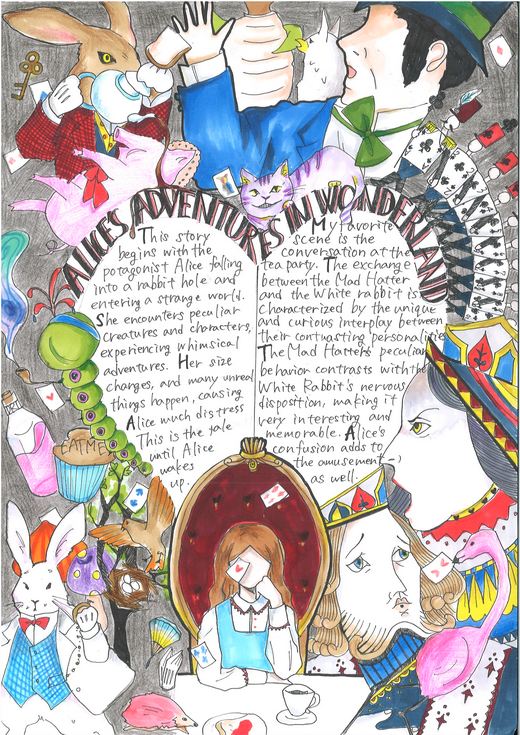 ALICE'S ADVENTURES IN WONDERLAND
This story
begins with the
potagonist Alice falling
into a rabbit hole and
entering a strange world.
She encounters peculiar
creatures and characters,
experiencing whimsical
adventures. Her size
changes, and many unreal
things happen, causing
Alice much distress
This is the tale
until Alice
wakes
up.
My favorite
scene is the
conversation at the
tea party. The exchange
between the Mad Hatter
and the White rabbit is
characterized by the unique
and curious interplay between
their contrasting personalities
The Mad Hatter's peculiar
behavior contrasts with the
White Rabbit's nervous
disposition, making it
very interesting and
memorable. Alice's
confusion adds to
the amusement
as well.
EAT ME